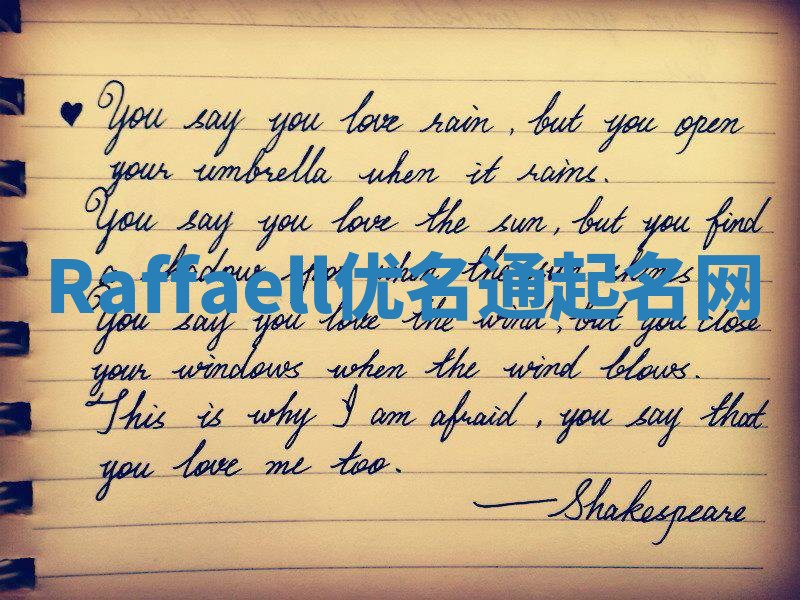 You say you love rain, but you open
your umbrella when it rains.
You say you love the sun, but you find
a shadow spot when the sun shines
Raffaell优名通起名网
You say you love the wind, but you close
your windows when the wind blows.
This is why I am afraid, you say that
you love me too.
—Shakespeare